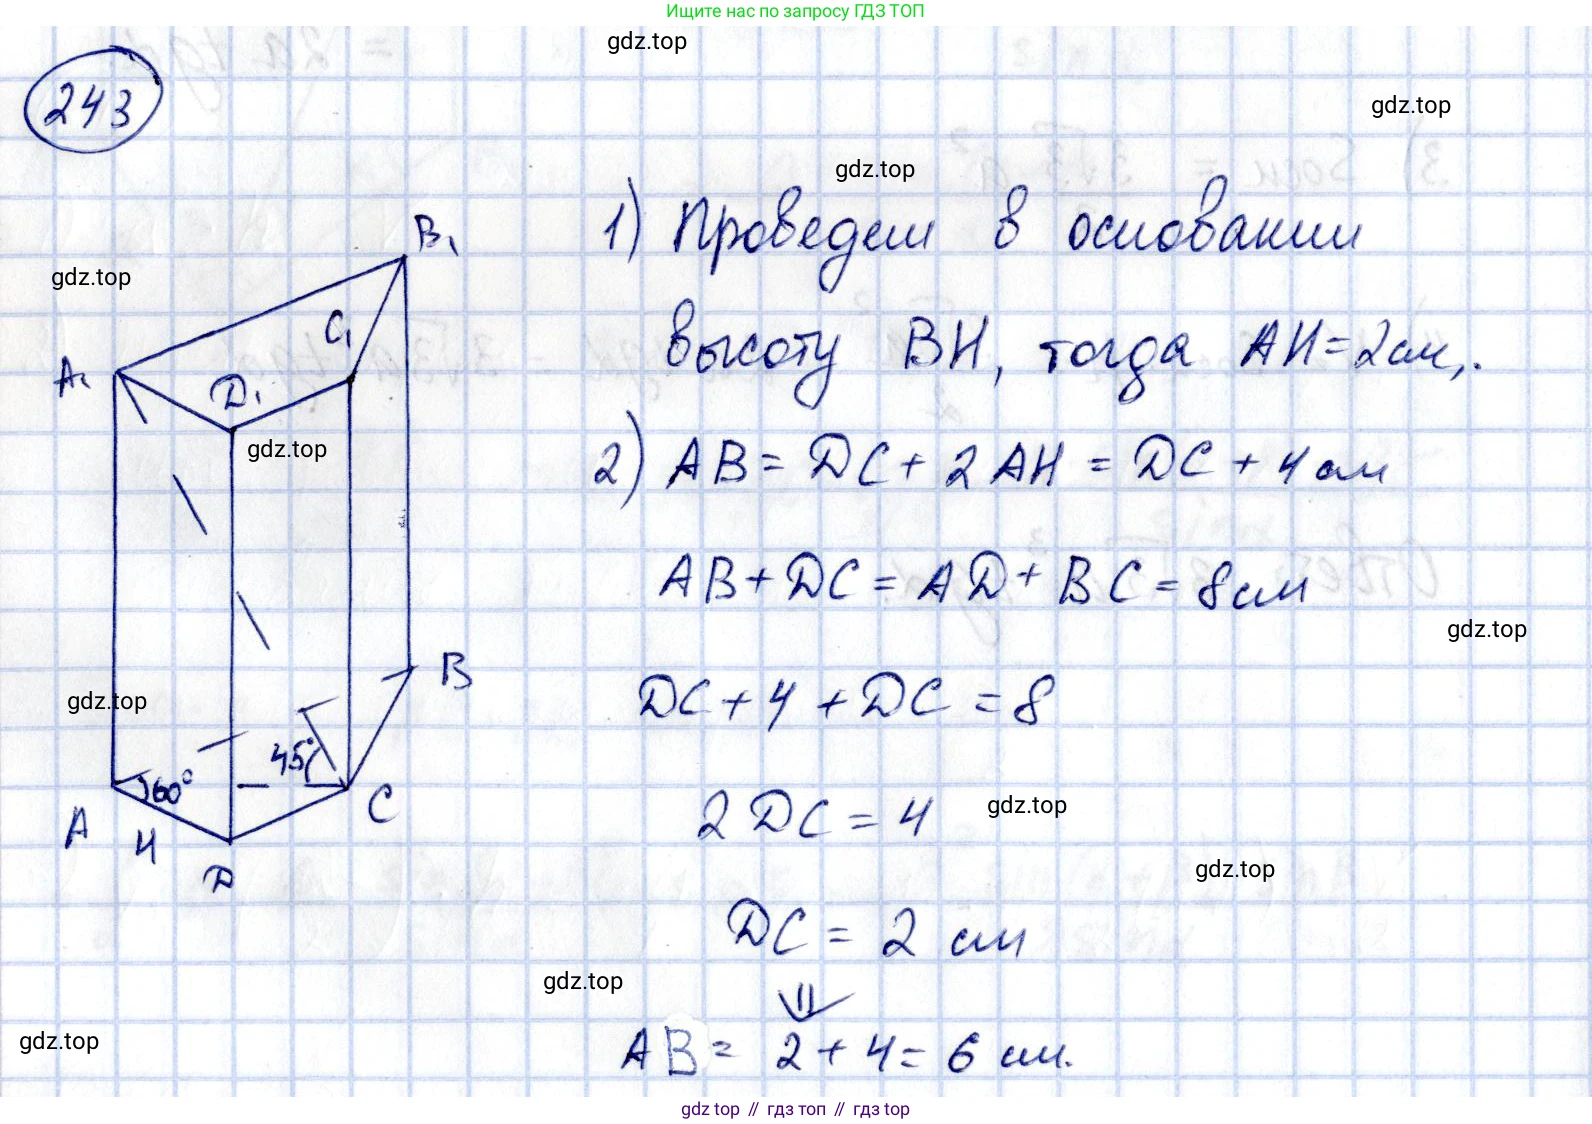 Ищите нас по запросу ГДЗ ТОП
gdz.top
243
gdz.top
gdz.top
1) Проведем в основании
B₁
gdz.top
C₁
высоту BH, тогда AH=2см,.
A₁
D₁
gdz.top
2) AB = DC + 2AH = DC + 4 см
AB + DC = AD + BC = 8 см
gdz.top
B
DC + 4 + DC = 8
gdz.top
45°
60°
A
H
D
C
2DC = 4
gdz.top
gdz.top
DC = 2 см
gdz.top
⇓
gdz.top
AB = 2 + 4 = 6 см.
gdz.top // гдз топ // гдз top